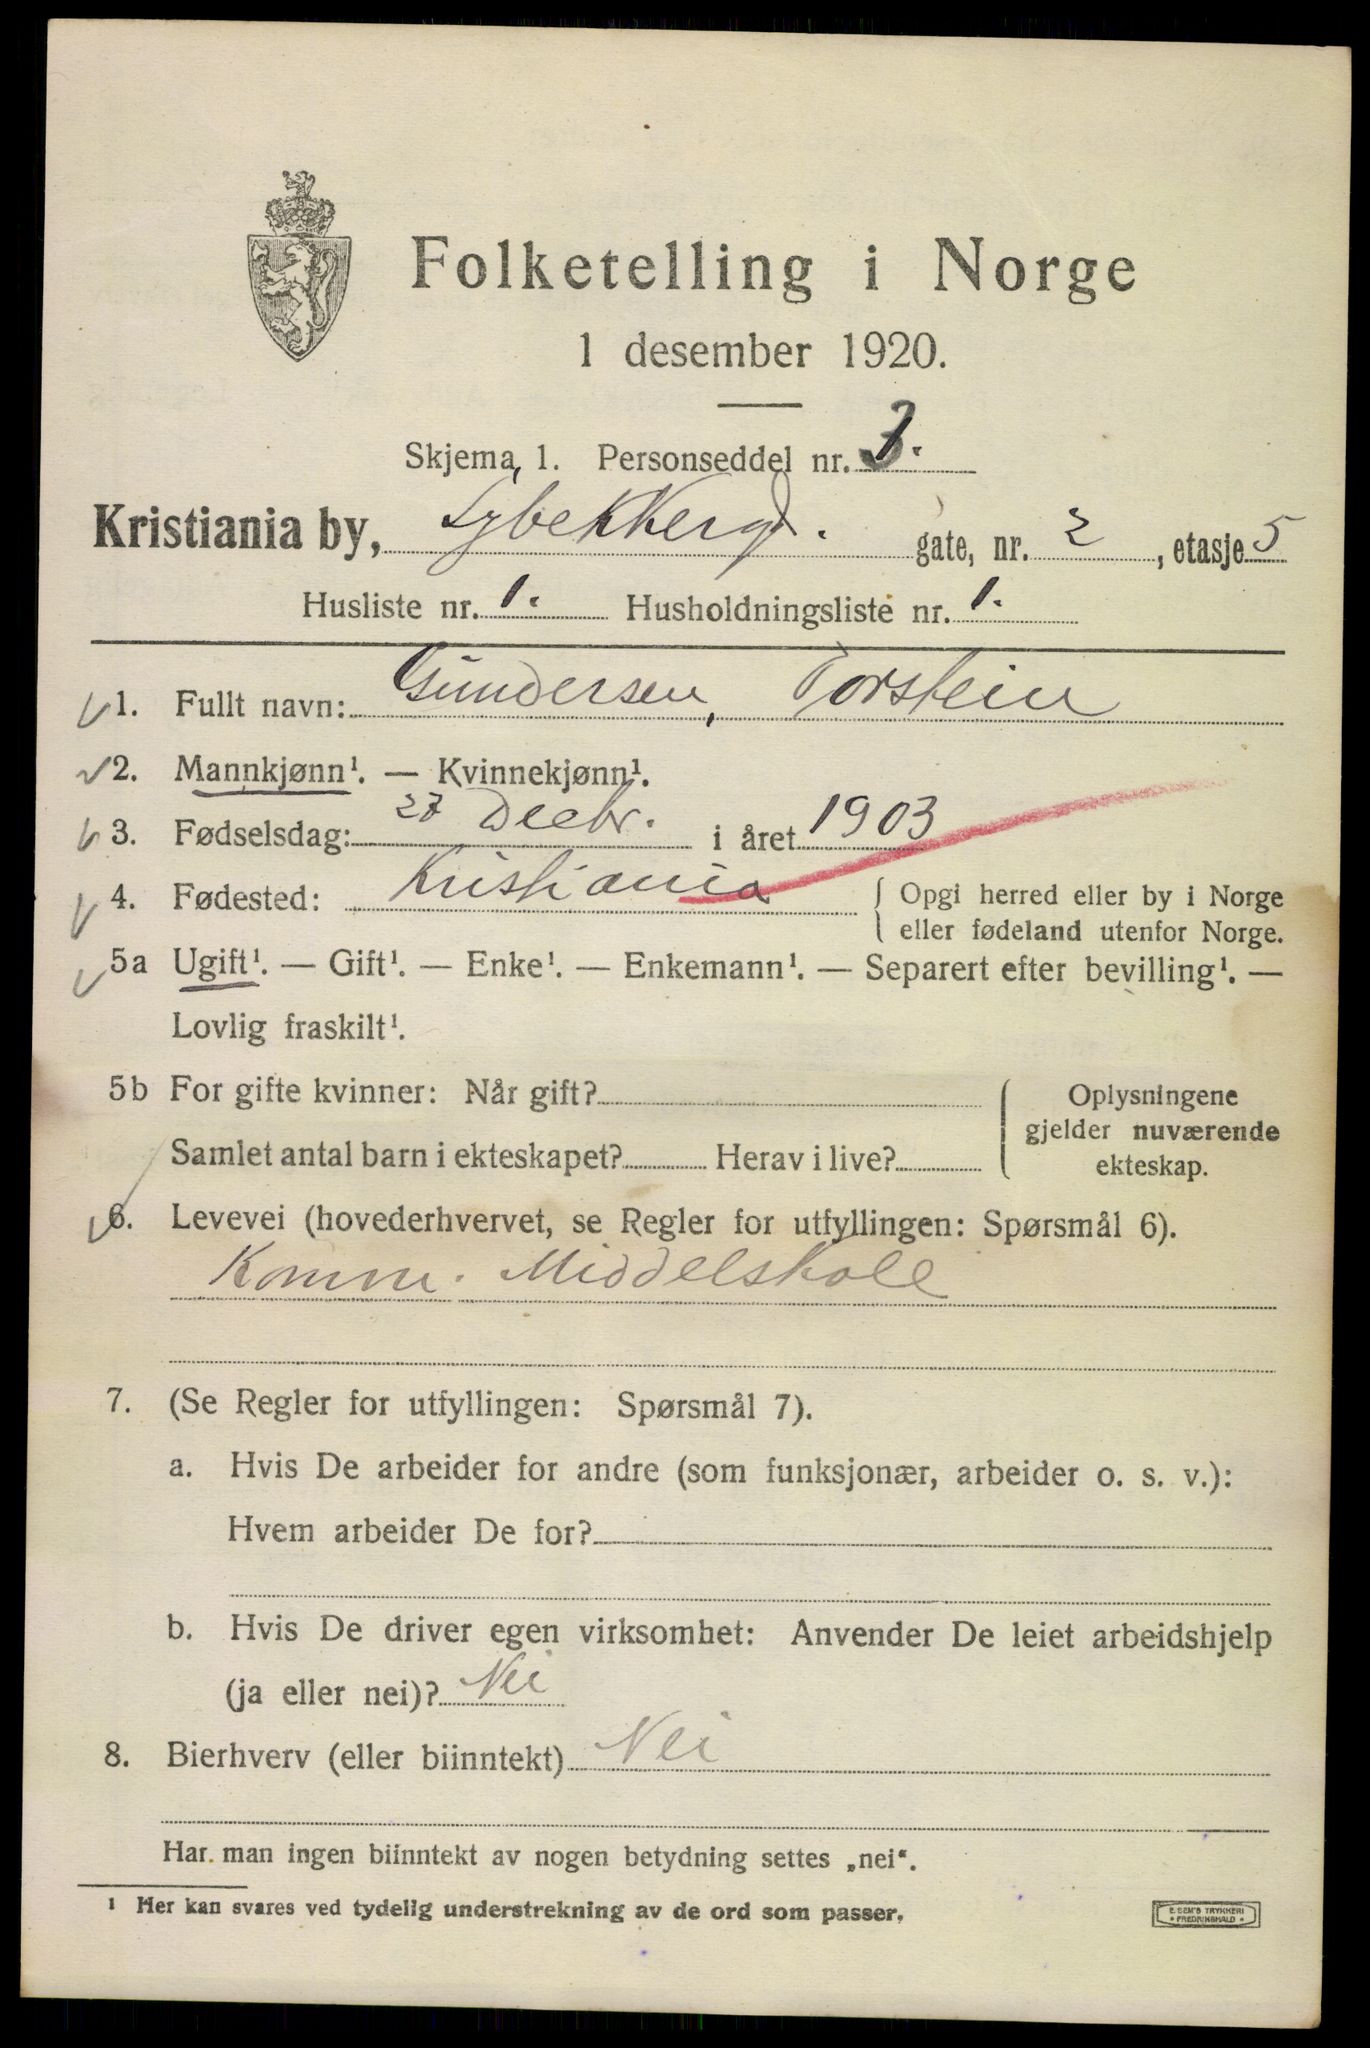 Folketelling i Norge
1 desember 1920.
Skjema 1. Personseddel nr. 3.
Kristiania by, Lybekkergd. gate, nr. 2, etasje 5
Husliste nr. 1. Husholdningsliste nr. 1.
1. Fullt navn: Gundersen, Torstein
2. Mannkjønn¹. — Kvinnekjønn¹.
3. Fødselsdag: 27 Decbr. i året 1903
4. Fødested: Kristiania { Opgi herred eller by i Norge
eller fødeland utenfor Norge.
5a Ugift¹. — Gift¹. — Enke¹. — Enkemann¹. — Separert efter bevilling¹. —
Lovlig fraskilt¹.
5b For gifte kvinner: Når gift? Oplysningene
gjelder nuværende
Samlet antal barn i ekteskapet? Herav i live? ekteskap.
6. Levevei (hovederhvervet, se Regler for utfyllingen: Spørsmål 6).
Komm. Middelskole
7. (Se Regler for utfyllingen: Spørsmål 7).
a. Hvis De arbeider for andre (som funksjonær, arbeider o. s. v.):
Hvem arbeider De for?
b. Hvis De driver egen virksomhet: Anvender De leiet arbeidshjelp
(ja eller nei)? Nei
8. Bierhverv (eller biinntekt) Nei
Har man ingen biinntekt av nogen betydning settes „nei“.
¹ Her kan svares ved tydelig understrekning av de ord som passer.
E. SEM'S TRYKKERI
* FREDRIKSHALD *